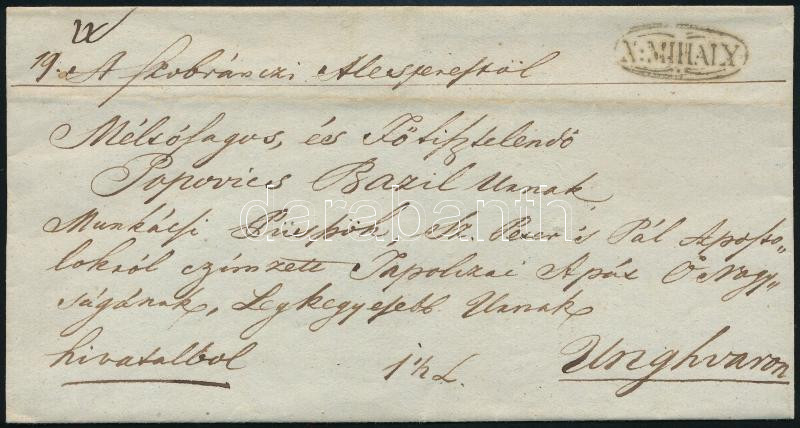 N: MIHALY
19. A Szobránczi Alesperestöl
Méltóságos, és Főtisztelendő
Popovics Bazil Urnak
Munkácsi Püspök, Sz. Peter és Pál Aposto„
lokról czímzett Tapolczai Apát Ő Nagy„
ságának, Legkegyesebb Urnak
hivatalbol 1½ L. Unghvaron
darabanth